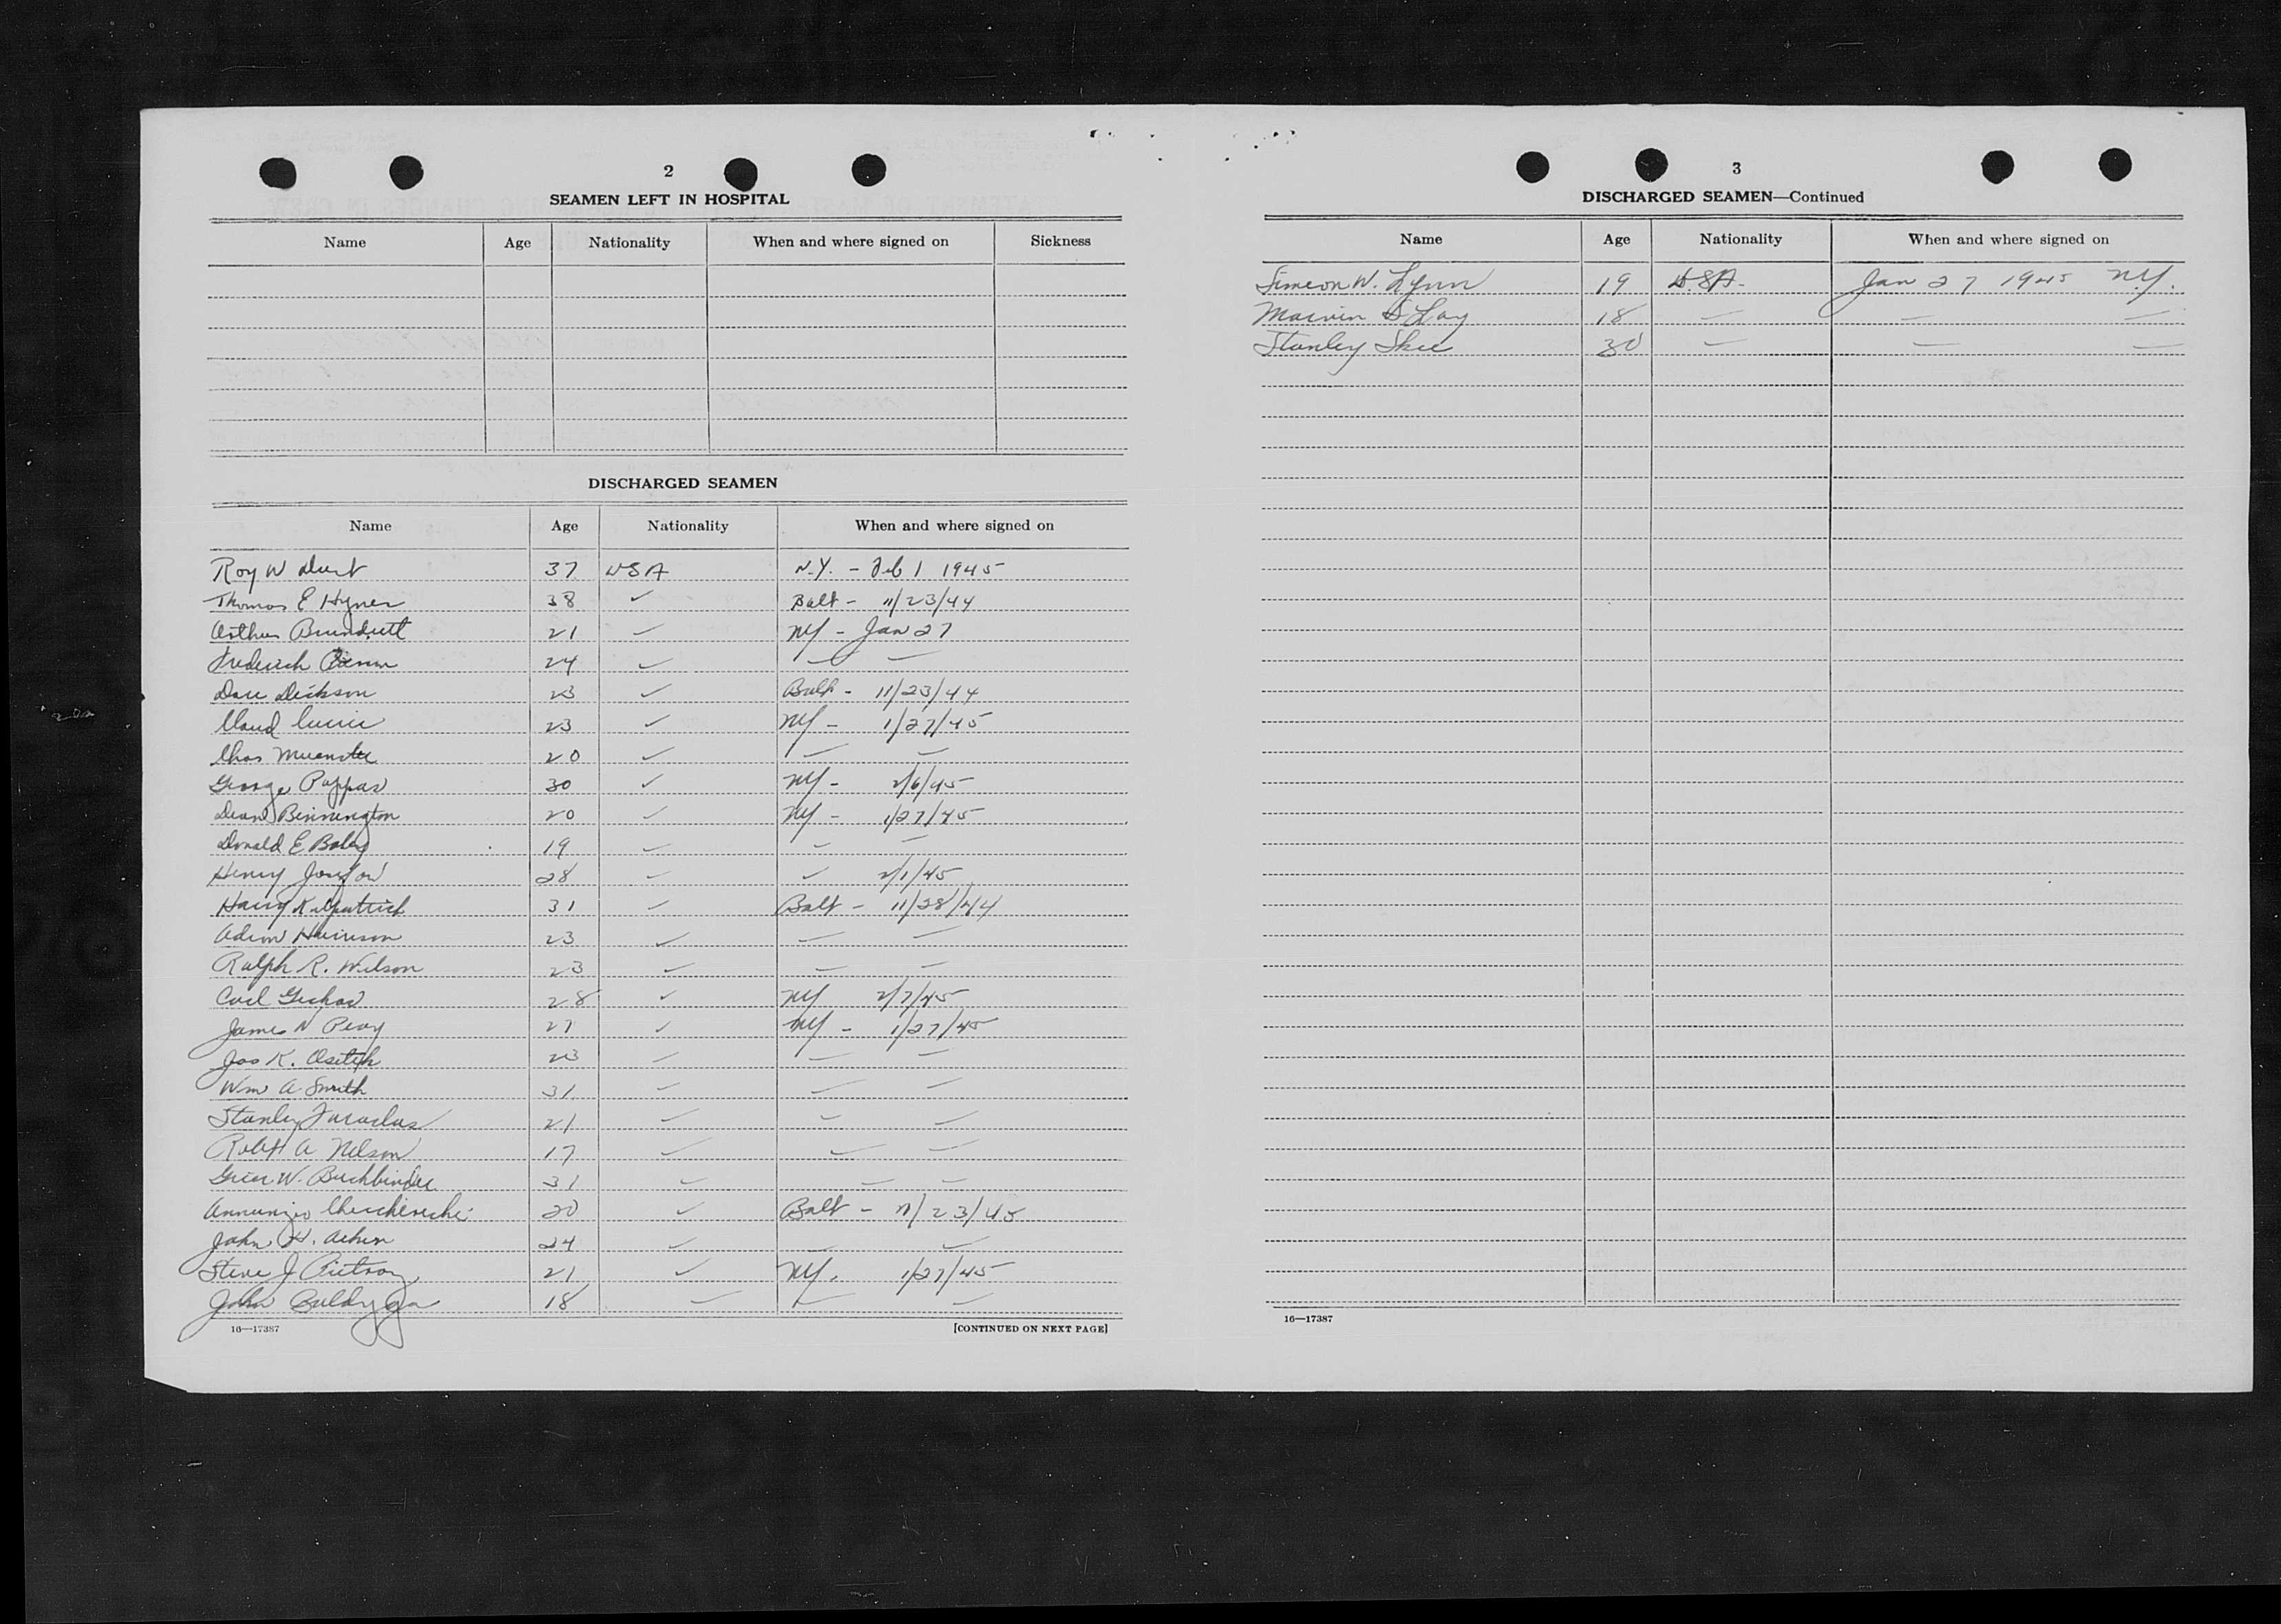 2
SEAMEN LEFT IN HOSPITAL
Name Age Nationality When and where signed on Sickness
DISCHARGED SEAMEN
Name Age Nationality When and where signed on
Roy W 37 USA N.Y. - Feb 1 1945
Thomas E Hynes 38 ✓ Balt - 11/23/44
Arthur Brundrett 21 ✓ NY - Jan 27
Frederick 24 ✓ — —
Dave Dickson 23 ✓ Balt - 11/23/44
Claud Currie 23 ✓ NY - 1/27/45
Chas Muenster 20 ✓ — —
George Pappas 30 ✓ NY - 2/6/45
Bennington 20 ✓ NY - 1/27/45
Donald E 19 ✓ — —
Henry 28 ✓ ✓ 2/1/45
Harry Kilpatrick 31 ✓ Balt - 11/28/44
Harrison 23 ✓ — —
Ralph R. Wilson 23 ✓ — —
Carl 28 ✓ NY 2/7/45
James N Peay 27 ✓ NY - 1/27/45
Jos K. 23 ✓ — —
Wm A Smith 31 ✓ — —
Stanley 21 ✓ — —
Robt A Nelson 17 ✓ — —
W. Buchbinder 31 ✓ — —
Annunzio 20 ✓ Balt - 11/23/45
John H. Aiken 24 ✓ — —
Steve J 21 ✓ NY. 1/27/45
John Buldyga 18 — — —
16—17387 [CONTINUED ON NEXT PAGE]
3
DISCHARGED SEAMEN—Continued
Name Age Nationality When and where signed on
Simeon W. Lynn 19 U.S.A. Jan 27 1945 N.Y.
Marvin D Lay 18 — — —
Stanley 30 — — —
16—17387